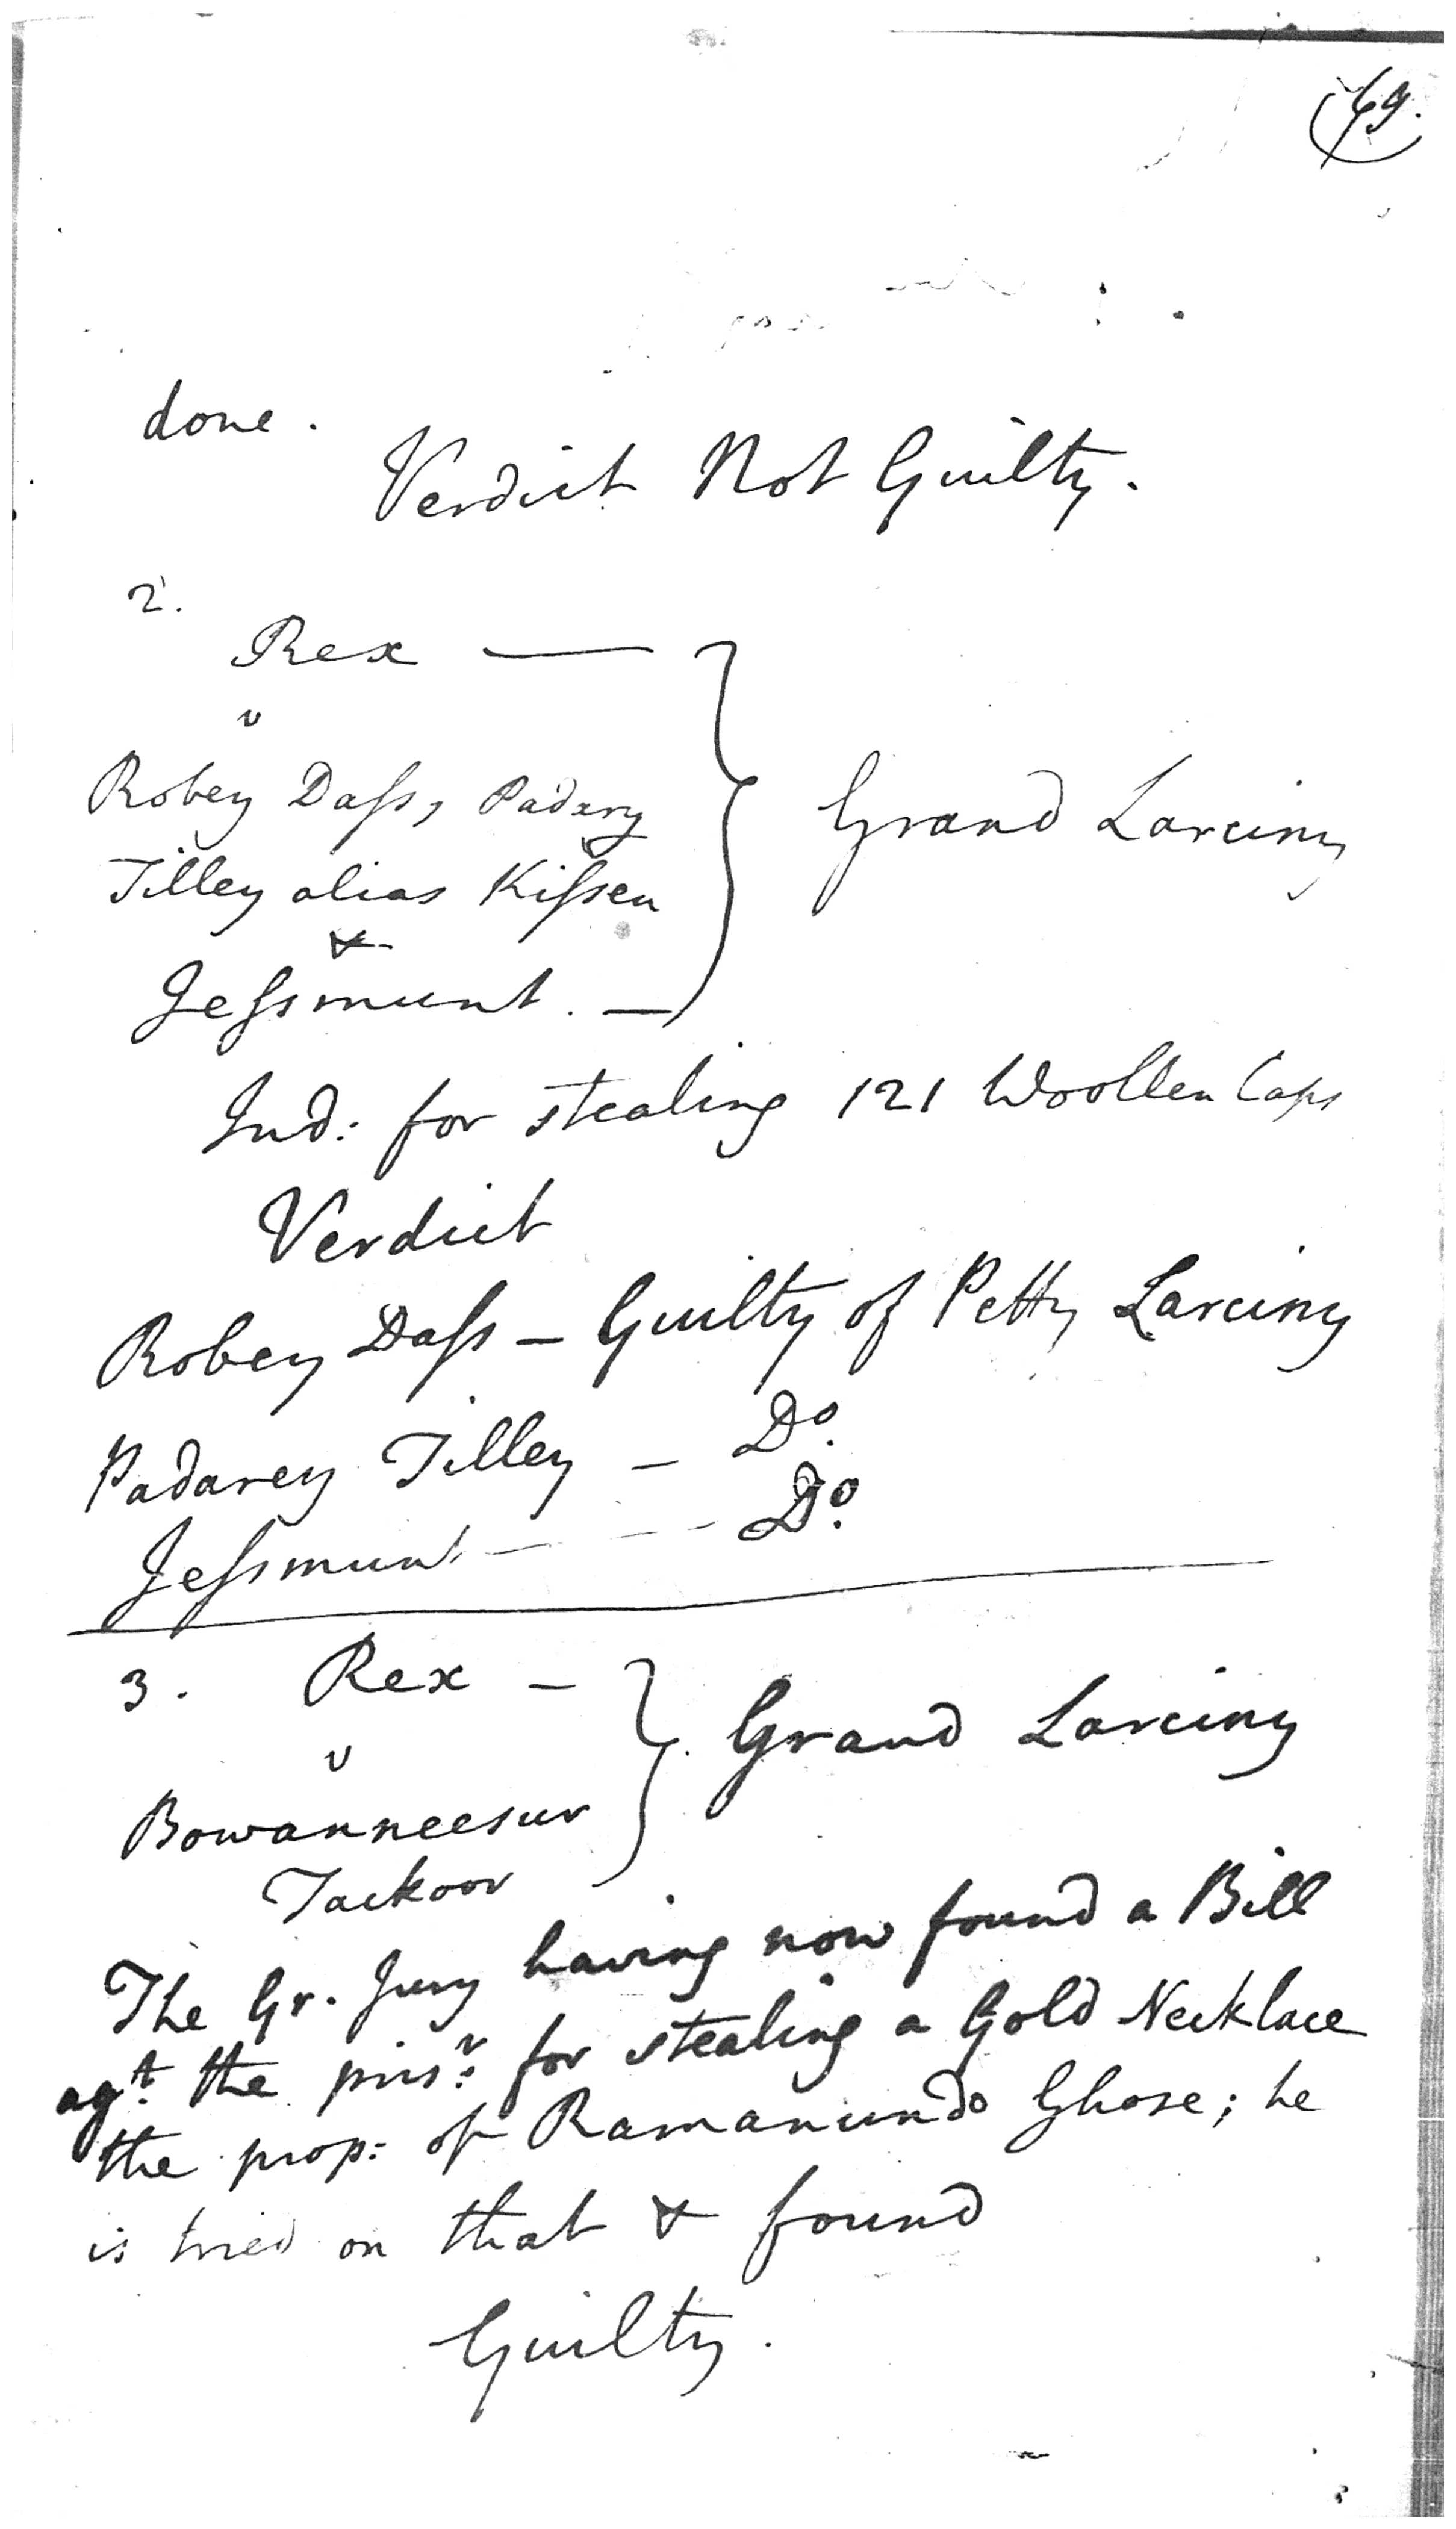 69.
done.
Verdict Not Guilty.
2.
Rex —
v
Robey Daſs, Padarey
Tilley alias Kiſsen
&
Jeſsmunt. —
Grand Larciny
Ind: for stealing 121 Woollen Caps
Verdict
Robey Daſs – Guilty of Petty Larciny
Padarey Tilley – Do.
Jeſsmunt. – – – Do.
3. Rex –
v
Bowanneesur
Tackoor
Grand Larciny
The Gr. Jury having now found a Bill
agt. the prisr. for stealing a Gold Necklace
the prop: of Ramanundo Ghose; he
is tried on that & found
Guilty.